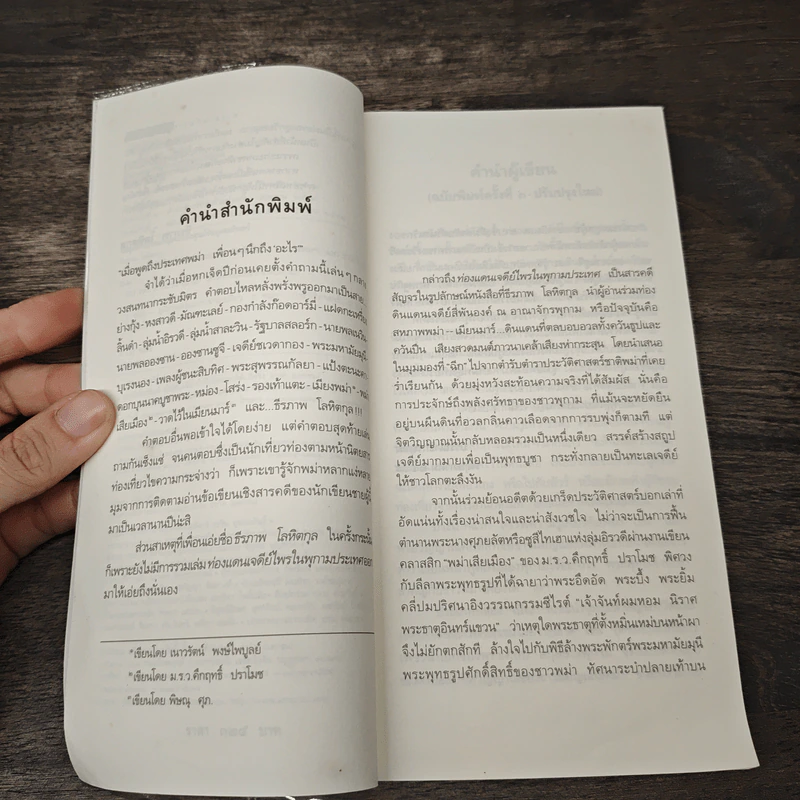 คำนำสำนักพิมพ์
"เมื่อพูดถึงประเทศพม่า เพื่อนๆ นึกถึง 'อะไร'"
จำได้ว่าเมื่อหกเจ็ดปีก่อนเคยตั้งคำถามนี้เล่นๆ กลาง
วงสนทนากระชับมิตร คำตอบไหลหลั่งพรั่งพรูออกมาเป็นสาย
ย่างกุ้ง-หงสาวดี-มัณฑะเลย์-กองกำลังก๊อดอาร์มี่-แฝดกะเหรี่ยง
ลิ้นดำ-ลุ่มน้ำอิรวดี-ลุ่มน้ำสาละวิน-รัฐบาลสลอร์ก-นายพลเนวิน
นายพลอองซาน-อองซานซูจี-เจดีย์ชเวดากอง-พระมหามัยมุนี
บุเรงนอง-เพลงผู้ชนะสิบทิศ-พระสุพรรณกัลยา-แป้งตะนะคา
ตอกบุนนาคบูชาพระ-หม่อง-โสร่ง-รองเท้าแตะ-เมียงพม่า*-พม่า
เสียเมือง*-วาดไว้ในเมียนมาร์* และ...ธีรภาพ โลหิตกุล!!!
คำตอบอื่นพอเข้าใจได้โดยง่าย แต่คำตอบสุดท้ายเล่น
ถามกันเซ็งแซ่ จนคนตอบซึ่งเป็นนักเที่ยวท่องตามหน้านิตยสาร
ท่องเที่ยวไขความกระจ่างว่า ก็เพราะเขารู้จักพม่าหลากแง่หลาย
มุมจากการติดตามอ่านข้อเขียนเชิงสารคดีของนักเขียนชายผู้นี้
มาเป็นเวลานานปีน่ะสิ
ส่วนสาเหตุที่เพื่อนเอ่ยชื่อ ธีรภาพ โลหิตกุล ในครั้งกระนั้น
ก็เพราะยังไม่มีการรวมเล่ม ท่องแดนเจดีย์ไพรในพุกามประเทศ ออก
มาให้เอ่ยถึงนั่นเอง
*เขียนโดย เนาวรัตน์ พงษ์ไพบูลย์
*เขียนโดย ม.ร.ว.คึกฤทธิ์ ปราโมช
*เขียนโดย พิษณุ ศุภ.
กล่าวถึง ท่องแดนเจดีย์ไพรในพุกามประเทศ เป็นสารคดี
สัญจรในรูปลักษณ์หนังสือที่ธีรภาพ โลหิตกุล นำผู้อ่านร่วมท่อง
ดินแดนเจดีย์สี่พันองค์ ณ อาณาจักรพุกาม หรือปัจจุบันคือ
สหภาพพม่า -- เมียนมาร์...ดินแดนที่ตลบอบอวลทั้งควันธูปและ
ควันปืน เสียงสวดมนต์ภาวนาเคล้าเสียงห่ากระสุน โดยนำเสนอ
ในมุมมองที่ "ฉีก" ไปจากตำรับตำราประวัติศาสตร์ชาติพม่าที่เคย
ร่ำเรียนกัน ด้วยมุ่งหวังสะท้อนความจริงที่ได้สัมผัส นั่นคือ
การประจักษ์ถึงพลังศรัทธาของชาวพุกาม ที่แม้นจะหยัดยืน
อยู่บนผืนดินที่อวลกลิ่นคาวเลือดจากการรบพุ่งก็ตามที แต่
จิตวิญญาณนั้นกลับหลอมรวมเป็นหนึ่งเดียว สรรค์สร้างสถูป
เจดีย์มากมายเพื่อเป็นพุทธบูชา กระทั่งกลายเป็นทะเลเจดีย์
ให้ชาวโลกตะลึงงัน
จากนั้นร่วมย้อนอดีตด้วยเกร็ดประวัติศาสตร์บอกเล่าที่
อัดแน่นทั้งเรื่องน่าสนใจและน่าสังเวชใจ ไม่ว่าจะเป็นการฟื้น
ตำนานพระนางศุภยลัตหรือซูสีไทเฮาแห่งลุ่มอิรวดีผ่านงานเขียน
คลาสสิก "พม่าเสียเมือง" ของ ม.ร.ว.คึกฤทธิ์ ปราโมช พิศวง
กับลีลาพระพุทธรูปที่ได้ฉายาว่าพระอืดอัด พระบึ้ง พระยิ้ม
คลี่ปมปริศนาอิงวรรณกรรมซีไรต์ "เจ้าจันท์ผมหอม นิราศ
พระธาตุอินทร์แขวน" ว่าเหตุใดพระธาตุที่ตั้งหมิ่นเหม่บนหน้าผา
จึงไม่ยักตกสักที ล้างใจไปกับพิธีล้างพระพักตร์พระมหามัยมุนี
พระพุทธรูปศักดิ์สิทธิ์ของชาวพม่า ทัศนาระบำปลายเท้าบน